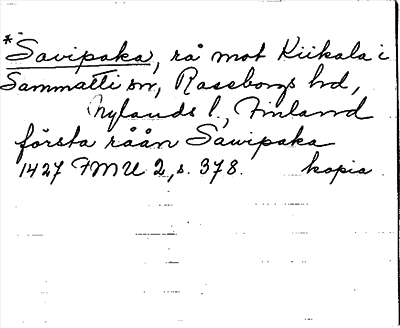 *Savipaka, rå mot Kiikala i
Sammatti sn, Raseborgs hd,
Nylands l., Finland
första råån Sawipaka
1427 FMU 2, s. 378. kopia